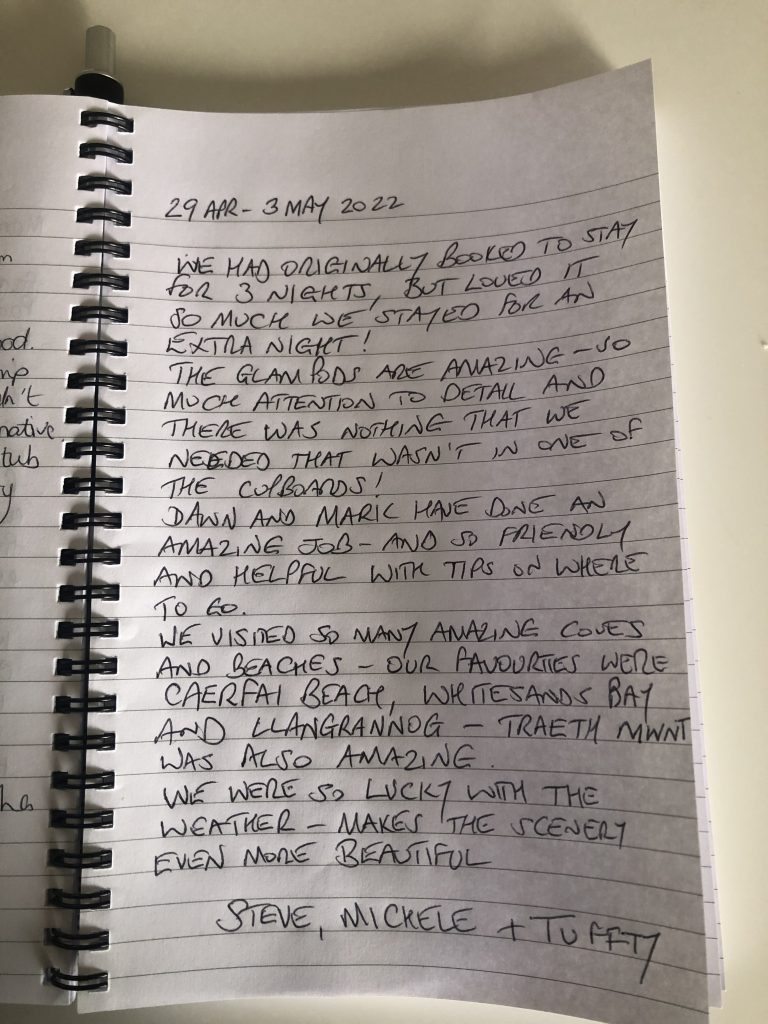 29 APR - 3 MAY 2022
WE HAD ORIGINALLY BOOKED TO STAY
FOR 3 NIGHTS, BUT LOVED IT
SO MUCH WE STAYED FOR AN
EXTRA NIGHT!
THE GLAMPODS ARE AMAZING - SO
MUCH ATTENTION TO DETAIL AND
THERE WAS NOTHING THAT WE
NEEDED THAT WASN'T IN ONE OF
THE CUPBOARDS!
DAWN AND MARK HAVE DONE AN
AMAZING JOB - AND SO FRIENDLY
AND HELPFUL WITH TIPS ON WHERE
TO GO.
WE VISITED SO MANY AMAZING COVES
AND BEACHES - OUR FAVOURTIES WERE
CAERFAI BEACH, WHITESANDS BAY
AND LLANGRANNOG - TRAETH MWNT
WAS ALSO AMAZING.
WE WERE SO LUCKY WITH THE
WEATHER - MAKES THE SCENERY
EVEN MORE BEAUTIFUL
STEVE, MICHELE + TUFFTY